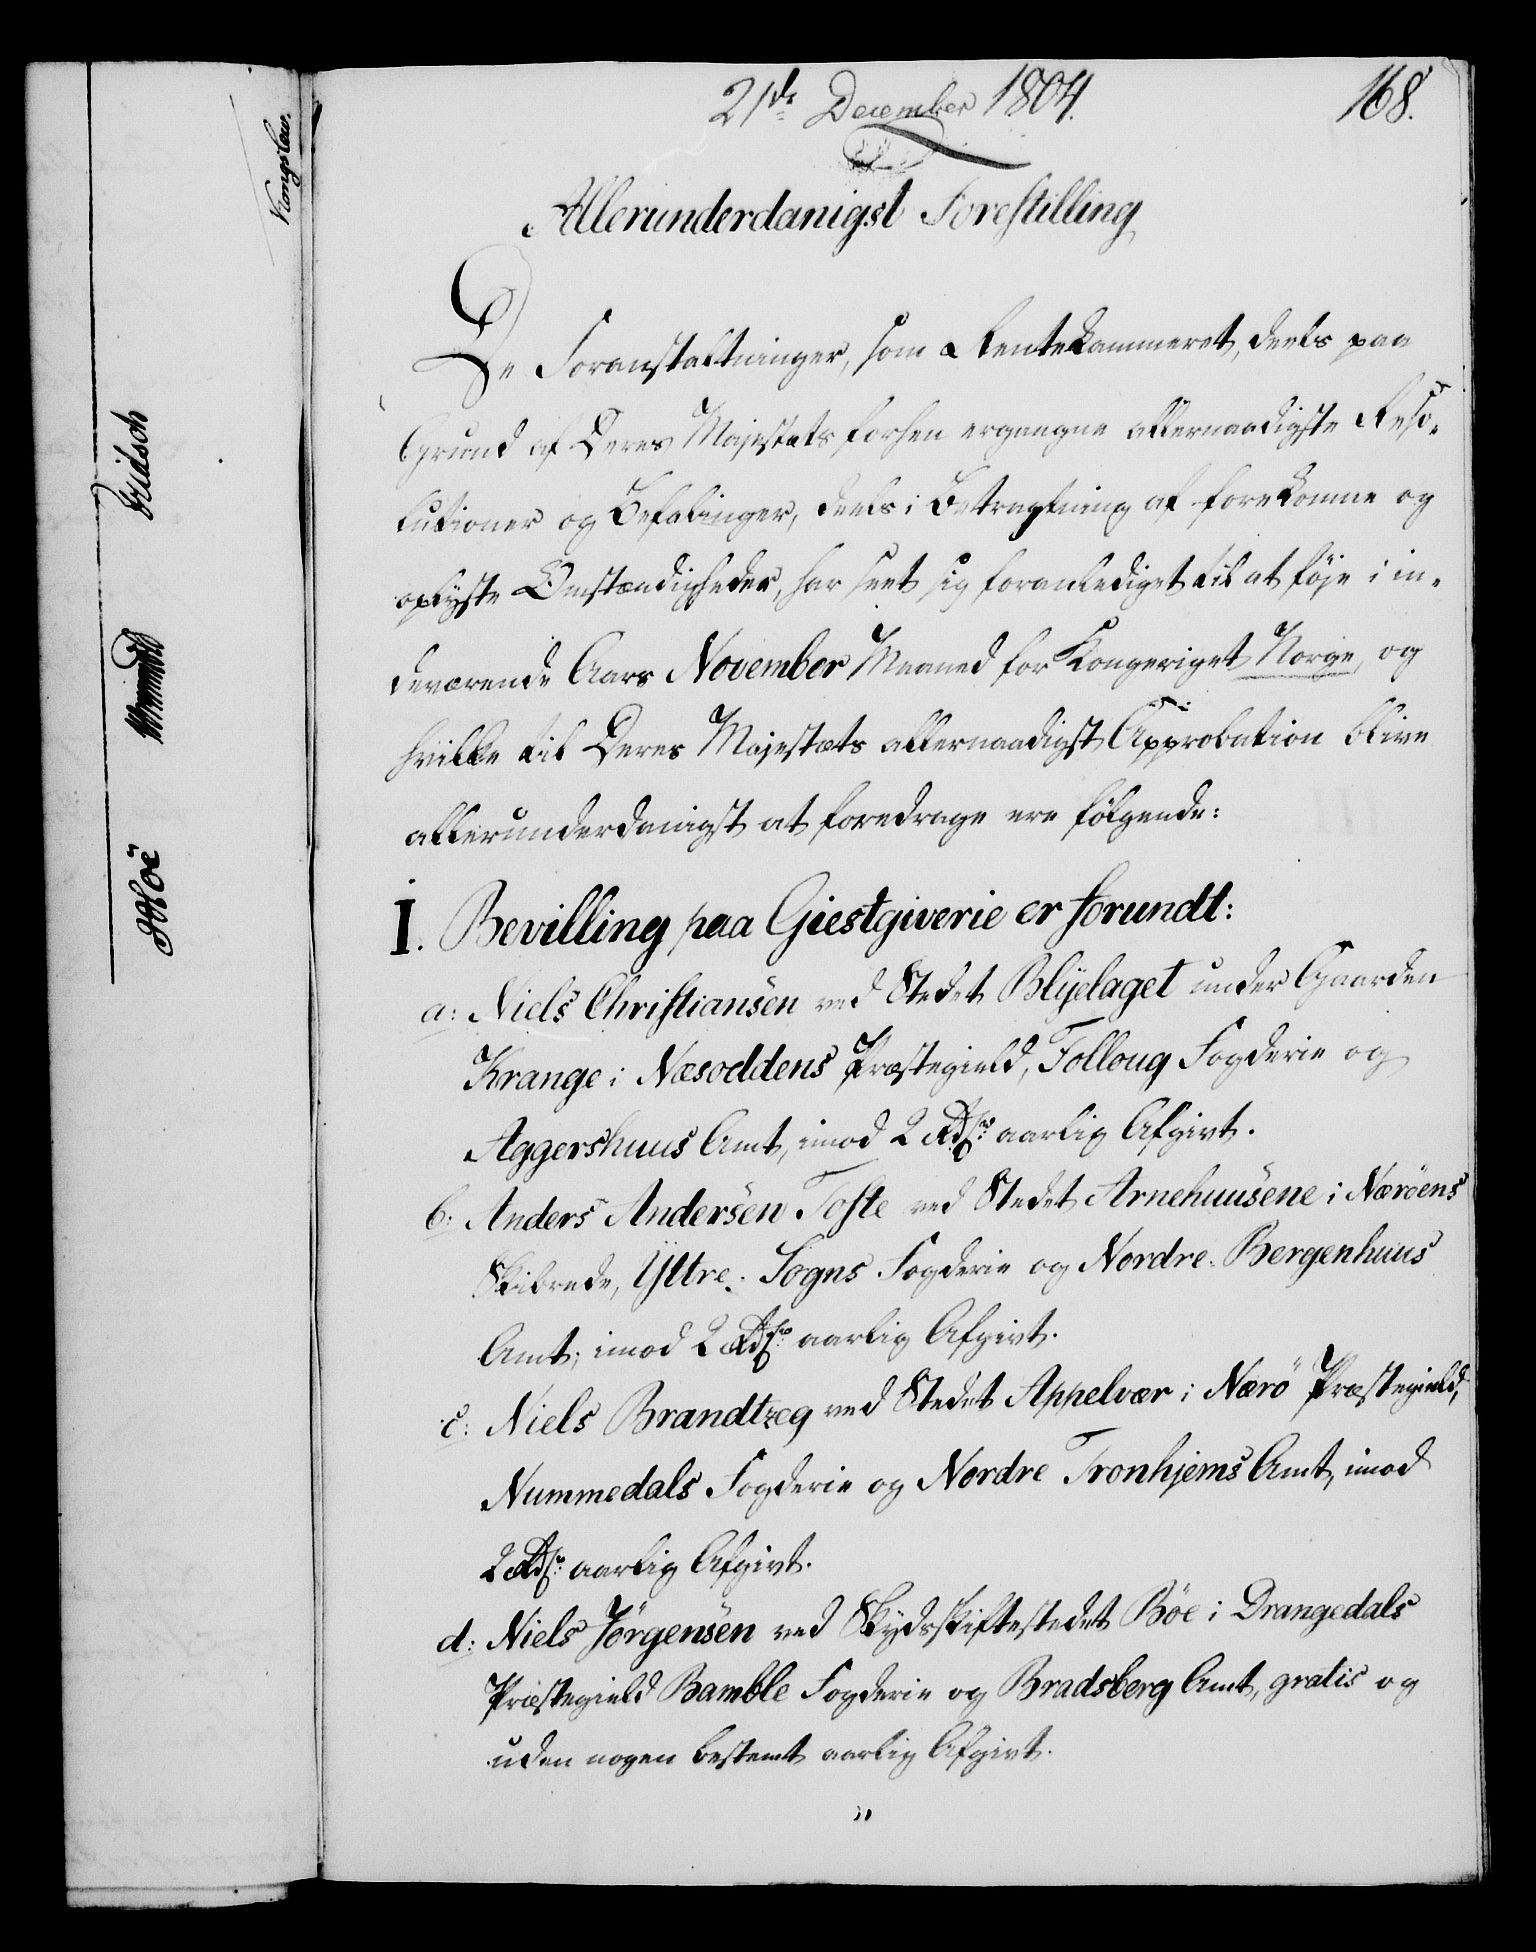 21de December 1804.
168.
Allerunderdanigst Forestilling
De Foranstaltninger, som Rentekammeret, deels paa
Grund af Deres Majestæts forhen ergangne allernaadigste Reso-
lutioner og Befalinger, deels i Betragtning af forekomne og
oplyste Omstændigheder, har seet sig foranlediget til at føje i in-
deværende Aars November Maaned for Kongeriget Norge, og
hvilke til Deres Majestæts allernaadigst Approbation blive
allerunderdanigst at foredrage ere følgende:
I. Bevilling paa Giestgiverie er forundt:
a: Niels Christiansen ved Stedet Blÿelaget under Gaarden
Krange i Næsoddens Præstegield, Folloug Fogderie og
Aggershuus Amt, imod 2 Rdlr aarlig Afgivt.
b: Anders Andersen Tofte ved Stedet Arnehuusene i Nærøens
Skibrede, Ÿttre-Sogns Fogderie og Nordre-Bergenhuus
Amt, imod 2 Rdlr aarlig Afgivt.
c: Niels Brandtzeg ved Stedet Appelvær i Nærö Præstegield,
Nummedals Fogderie og Nordre Tronhjems Amt, imod
2 Rdlr aarlig Afgivt.
d: Niels Jörgensen ved Skydsskiftestedet Böe i Drangedals
Præstegield Bamble Fogderie og Bradsberg Amt, gratis og
uden nogen bestemt aarlig Afgivt.
Kongslew.